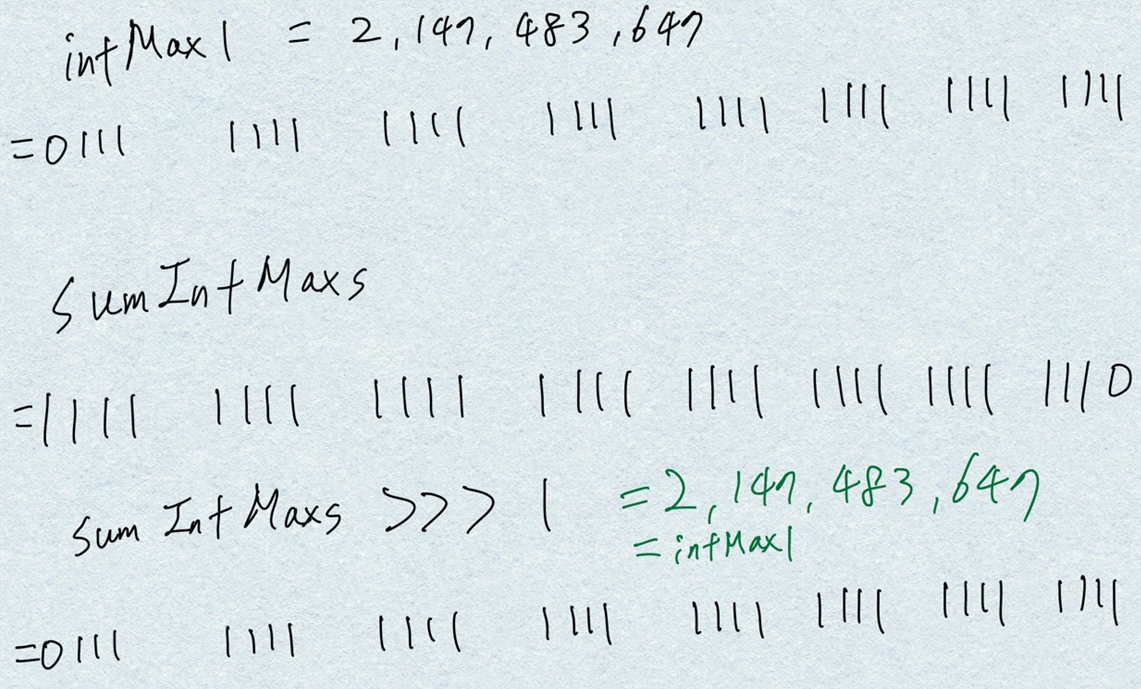 intMax1 = 2,147,483,647
=0111 1111 1111 1111 1111 1111 1111 1111
sumIntMaxs
=1111 1111 1111 1111 1111 1111 1111 1110
sumIntMaxs >>> 1 =2,147,483,647
=intMax1
=0111 1111 1111 1111 1111 1111 1111 1111